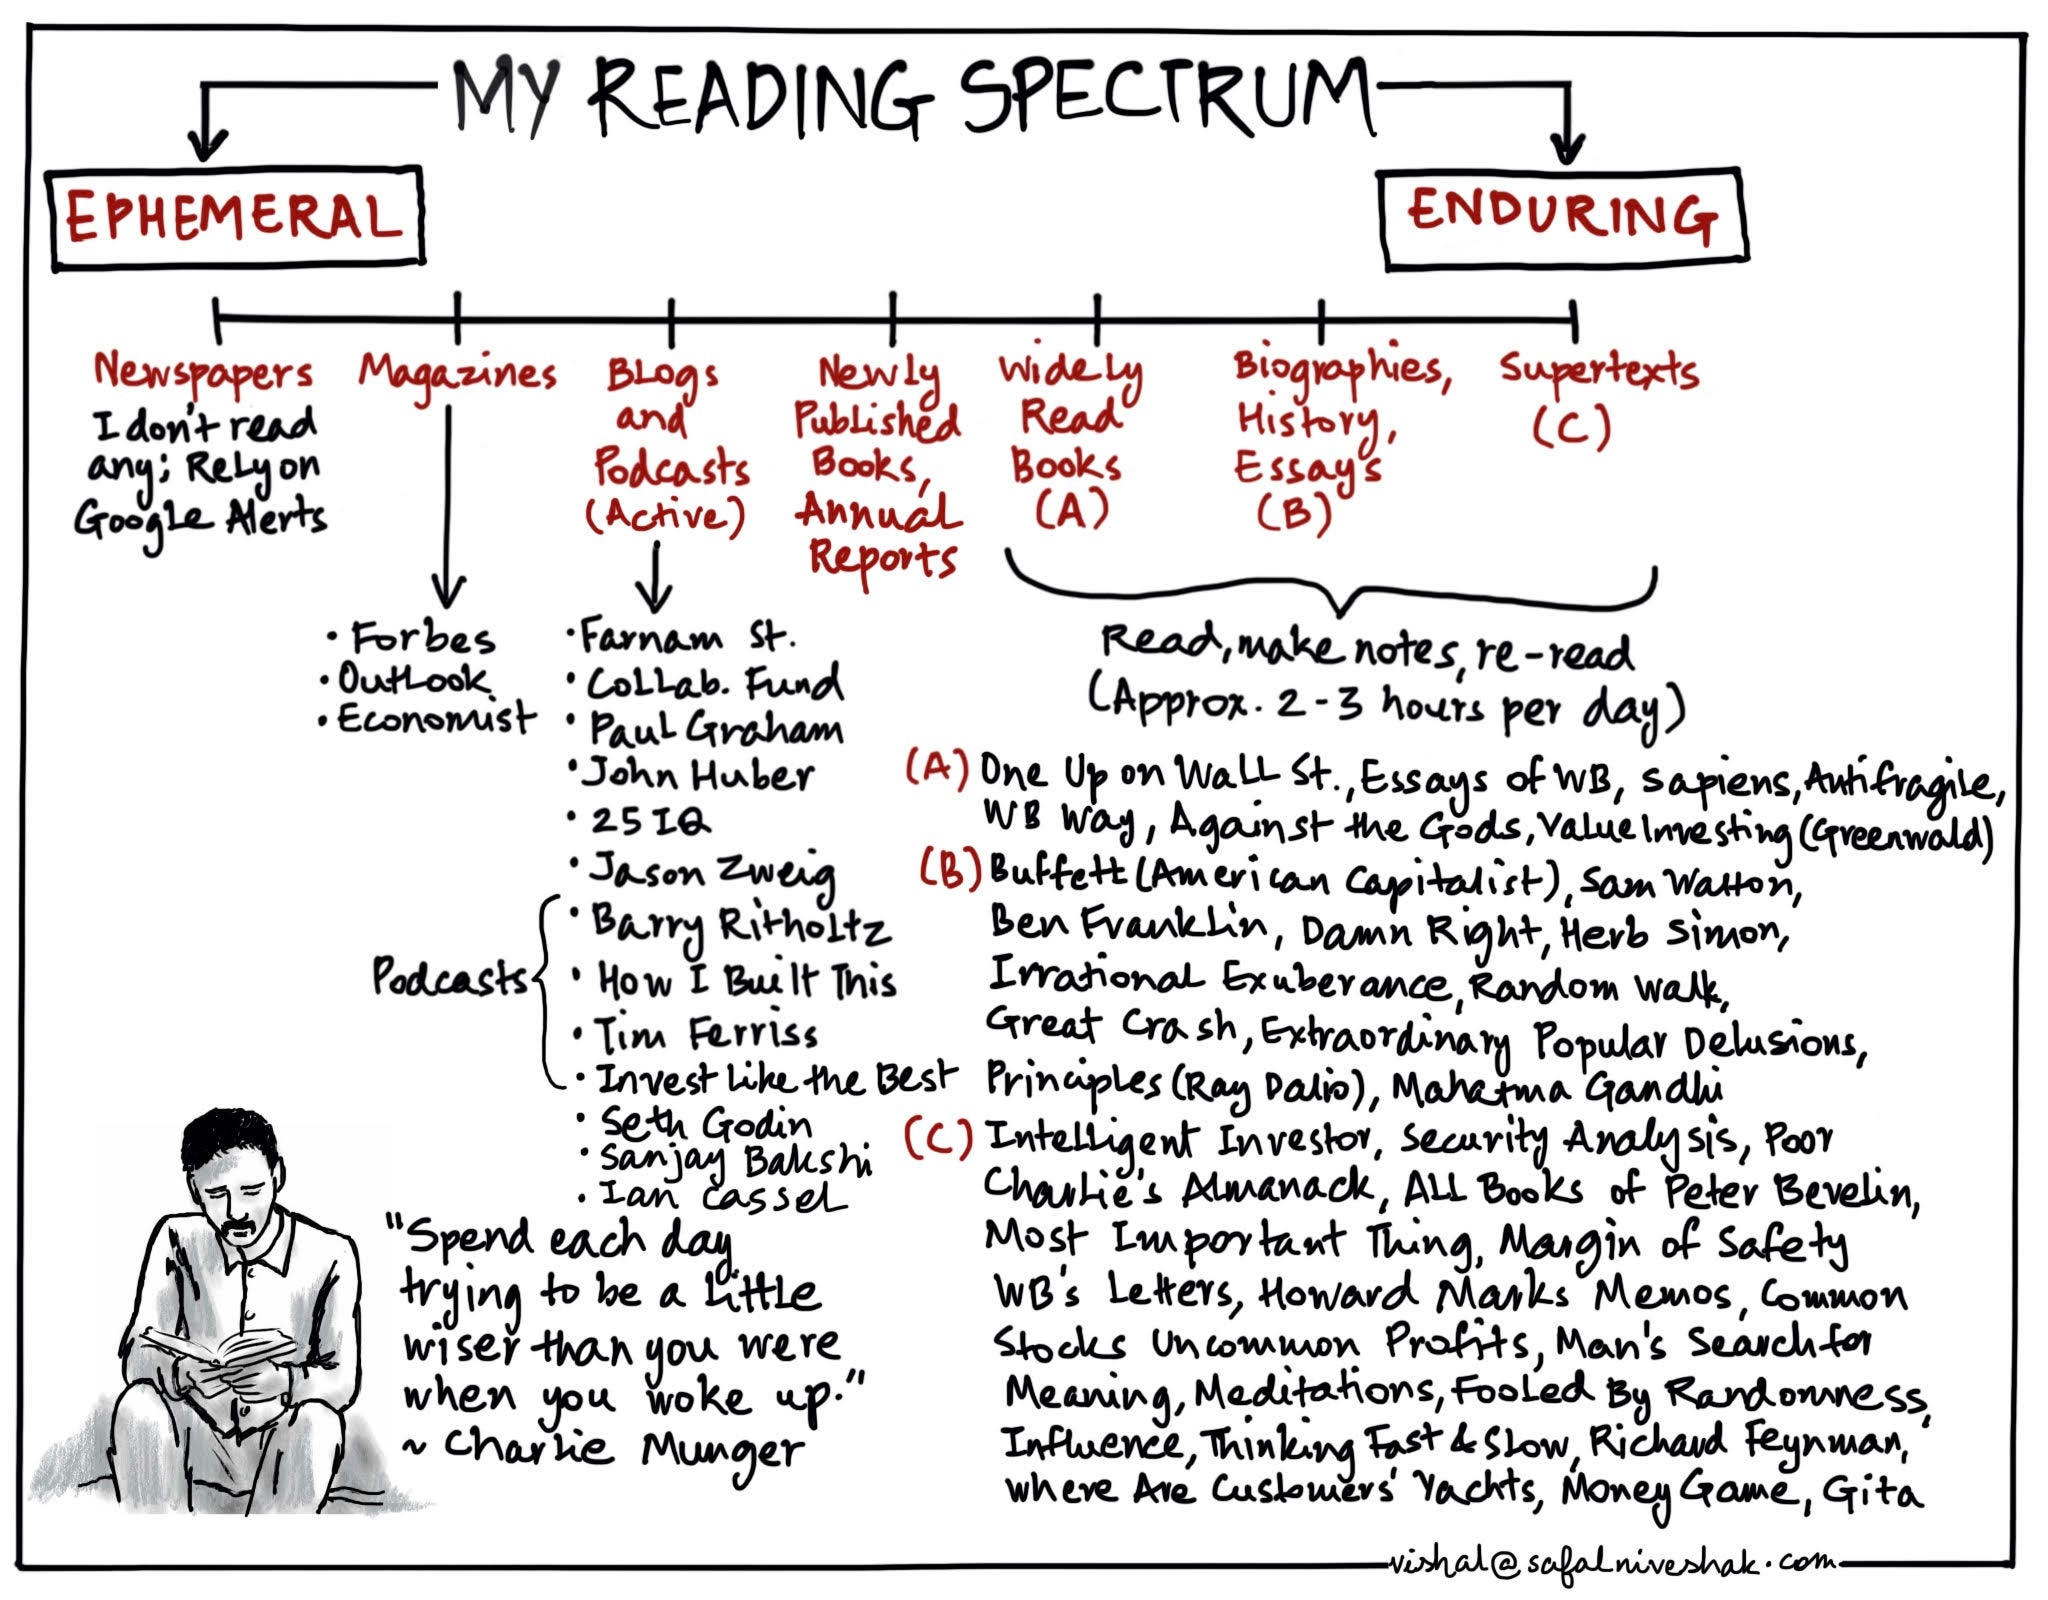 MY READING SPECTRUM
EPHEMERAL
ENDURING
Newspapers
I don't read
any; Rely on
Google Alerts
Magazines
• Forbes
• Outlook
• Economist
Blogs
and
Podcasts
(Active)
• Farnam St.
• Collab. Fund
• Paul Graham
• John Huber
• 25 IQ
• Jason Zweig
Podcasts
• Barry Ritholtz
• How I Built This
• Tim Ferriss
• Invest Like the Best
• Seth Godin
• Sanjay Bakshi
• Ian Cassel
Newly
Published
Books,
Annual
Reports
Widely
Read
Books
(A)
Biographies,
History,
Essays
(B)
Supertexts
(C)
Read, make notes, re-read
(Approx. 2-3 hours per day)
(A) One Up on Wall St., Essays of WB, Sapiens, Antifragile,
WB Way, Against the Gods, Value Investing (Greenwald)
(B) Buffett (American Capitalist), Sam Walton,
Ben Franklin, Damn Right, Herb Simon,
Irrational Exuberance, Random Walk,
Great Crash, Extraordinary Popular Delusions,
Principles (Ray Dalio), Mahatma Gandhi
(C) Intelligent Investor, Security Analysis, Poor
Charlie's Almanack, All Books of Peter Bevelin,
Most Important Thing, Margin of Safety
WB's Letters, Howard Marks Memos, Common
Stocks Uncommon Profits, Man's Search for
Meaning, Meditations, Fooled By Randomness,
Influence, Thinking Fast & Slow, Richard Feynman,
Where Are Customers' Yachts, Money Game, Gita
"Spend each day
trying to be a little
wiser than you were
when you woke up."
~ Charlie Munger
vishal@safalniveshak.com